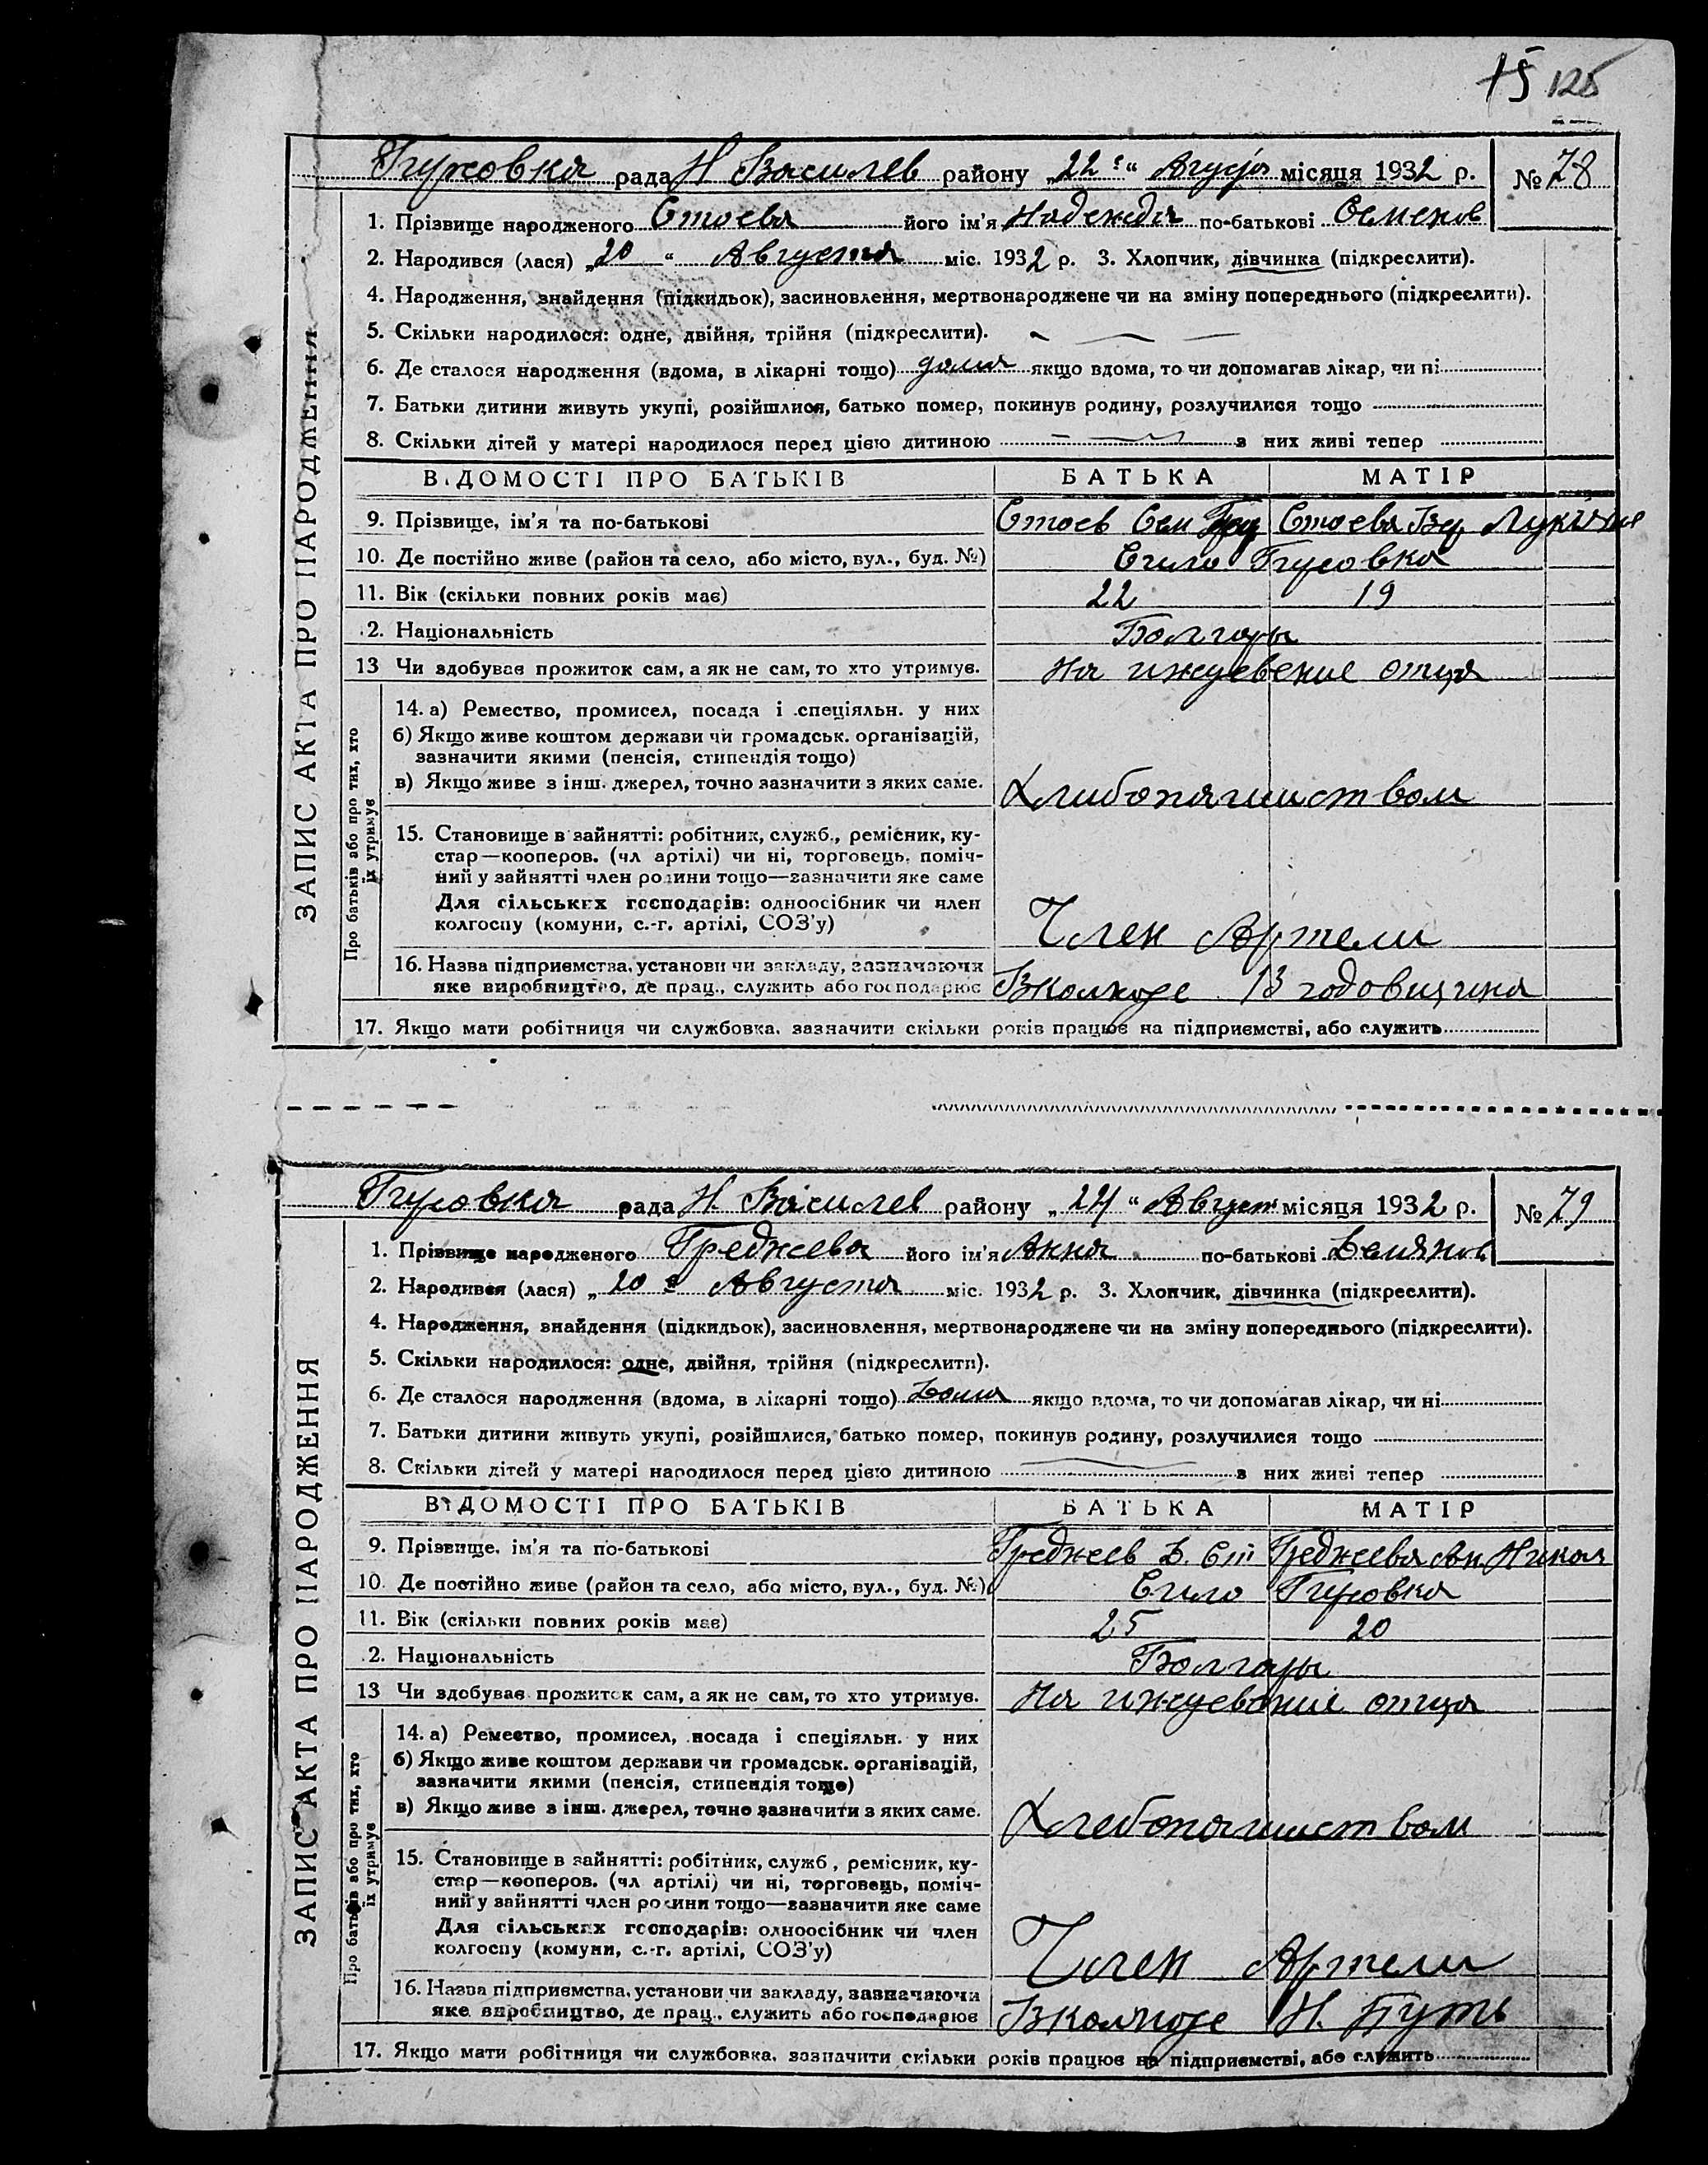 15 125
Гуровка рада Н Василев району „22“ Август місяця 1932 р. № 78
1. Прізвище народженого Стоева його ім'я Надежда по-батькові Семенов
2. Народився (лася) „20“ Августа міс. 1932 р. 3. Хлопчик, дівчинка (підкреслити).
4. Народження, знайдення (підкидьок), засиновлення, мертвонароджене чи на зміну попереднього (підкреслити).
5. Скільки народилося: одне, двійня, трійня (підкреслити).
6. Де сталося народження (вдома, в лікарні тощо) дома якщо вдома, то чи допомагав лікар, чи ні
7. Батьки дитини живуть укупі, розійшлися, батько помер, покинув родину, розлучилися тощо
8. Скільки дітей у матері народилося перед цією дитиною з них живі тепер
ВІДОМОСТІ ПРО БАТЬКІВ БАТЬКА МАТІР
9. Прізвище, ім'я та по-батькові Стоев Сем Стоева
10. Де постійно живе (район та село, або місто, вул., буд. №) Сило Гуровка
11. Вік (скільки повних років має) 22 19
12. Національність Болгары
13 Чи здобував прожиток сам, а як не сам, то хто утримує. На иждевение отца
14. а) Ремество, промисел, посада і спеціяльн. у них
б) Якщо живе коштом держави чи громадськ. організацій,
зазначити якими (пенсія, стипендія тощо)
в) Якщо живе з інш. джерел, точно зазначити з яких саме. Хлибопашиством
15. Становище в зайнятті: робітник, служб., ремісник, ку-
стар—кооперов. (чл артілі) чи ні, торговець, поміч-
ний у зайнятті член родини тощо—зазначити яке саме
Для сільських господарів: одноосібник чи член
колгоспу (комуни, с.-г. артілі, СОЗ'у) Член Артели
16. Назва підприємства, установи чи закладу, зазначаючи
яке виробництво, де прац., служить або господарює Вколхозе 13 годовщина
17. Якщо мати робітниця чи службовка, зазначити скільки років працює на підприємстві, або служить
ЗАПИС АКТА ПРО НАРОДЖЕННЯ
Про батьків або про тих, хто
їх утримує
Гуровка рада Н. Василев району „24“ Август місяця 1932 р. № 79
1. Прізвище народженого Греджева його ім'я Анна по-батькові Демянов
2. Народився (лася) „20 Августа міс. 1932 р. 3. Хлопчик, дівчинка (підкреслити).
4. Народження, знайдення (підкидьок), засиновлення, мертвонароджене чи на зміну попереднього (підкреслити).
5. Скільки народилося: одне, двійня, трійня (підкреслити).
6. Де сталося народження (вдома, в лікарні тощо) Дома якщо вдома, то чи допомагав лікар, чи ні
7. Батьки дитини живуть укупі, розійшлися, батько помер, покинув родину, розлучилися тощо
8. Скільки дітей у матері народилося перед цією дитиною з них живі тепер
ВІДОМОСТІ ПРО БАТЬКІВ БАТЬКА МАТІР
9. Прізвище, ім'я та по-батькові Греджев Д. Ст Греджева Ан Никол
10. Де постійно живе (район та село, або місто, вул., буд. №) Сило Гуровка
11. Вік (скільки повних років має) 25 20
12. Національність Болгары
13 Чи здобував прожиток сам, а як не сам, то хто утримує. На иждевение отца
14. а) Ремество, промисел, посада і спеціяльн. у них
б) Якщо живе коштом держави чи громадськ. організацій,
зазначити якими (пенсія, стипендія тощо)
в) Якщо живе з інш. джерел, точно зазначити з яких саме. Хлебопашиством
15. Становище в зайнятті: робітник, служб., ремісник, ку-
стар—кооперов. (чл артілі) чи ні, торговець, поміч-
ний у зайнятті член родини тощо—зазначити яке саме
Для сільських господарів: одноосібник чи член
колгоспу (комуни, с.-г. артілі, СОЗ'у) Член Артели
16. Назва підприємства, установи чи закладу, зазначаючи
яке виробництво, де прац., служить або господарює Вколхозе Н. Путь
17. Якщо мати робітниця чи службовка, зазначити скільки років працює на підприємстві, або служить
ЗАПИС АКТА ПРО НАРОДЖЕННЯ
Про батьків або про тих, хто
їх утримує